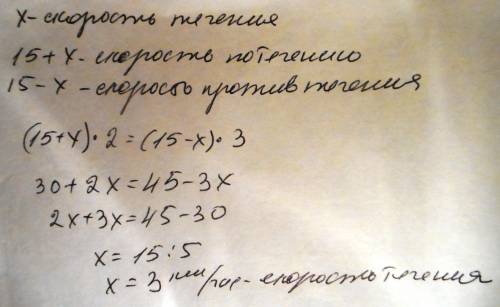 x - скорость течения
15 + x - скорость по течению
15 - x - скорость против течения
(15+x)·2 = (15-x)·3
30 + 2x = 45 - 3x
2x + 3x = 45 - 30
x = 15 : 5
x = 3 км/час - скорость течения